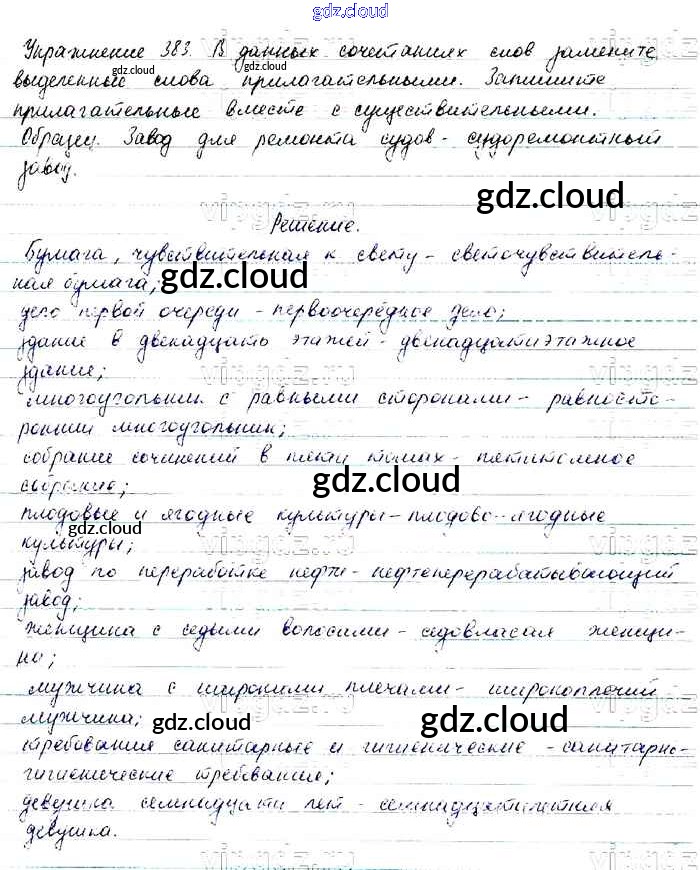 gdz.cloud
Упражнение 383. В данных сочетаниях слов замените
gdz.cloud gdz.cloud
выделенные слова прилагательными. Запишите
прилагательные вместе с существительными.
Образец. Завод для ремонта судов - судоремонтный
завод.
gdz.cloud
Решение.
Бумага, чувствительная к свету - светочувствитель-
ная бумага;
gdz.cloud
дело первой очереди - первоочередное дело;
здание в двенадцать этажей - двенадцатиэтажное
здание;
многоугольник с равными сторонами - равносто-
ронний многоугольник;
собрание сочинений в пяти томах - пятитомное
собрание;
gdz.cloud
плодовые и ягодные культуры - плодово-ягодные
gdz.cloud
культуры;
завод по переработке нефти - нефтеперерабатывающий
завод;
женщина с седыми волосами - седовласая женщи-
на;
мужчина с широкими плечами - широкоплечий
мужчина;
gdz.cloud gdz.cloud
требования санитарные и гигиенические - санитарно-
гигиенические требования;
девушка семнадцати лет - семнадцатилетняя
девушка.